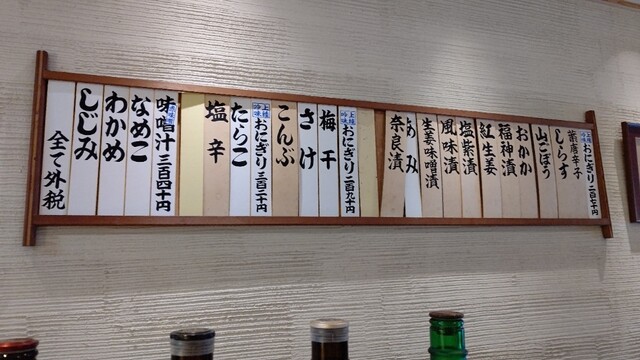 上様吟味 おにぎり 二百七十円
葉唐辛子
しらす
山ごぼう
おかか
福神漬
紅生姜
塩紫漬
風味漬
生姜味噌漬
あみ
奈良漬
上様吟味 おにぎり 二百九十円
梅干
さけ
こんぶ
上様吟味 おにぎり 三百三十円
たらこ
塩辛
味噌汁 三百四十円
なめこ
わかめ
しじみ
全て外税